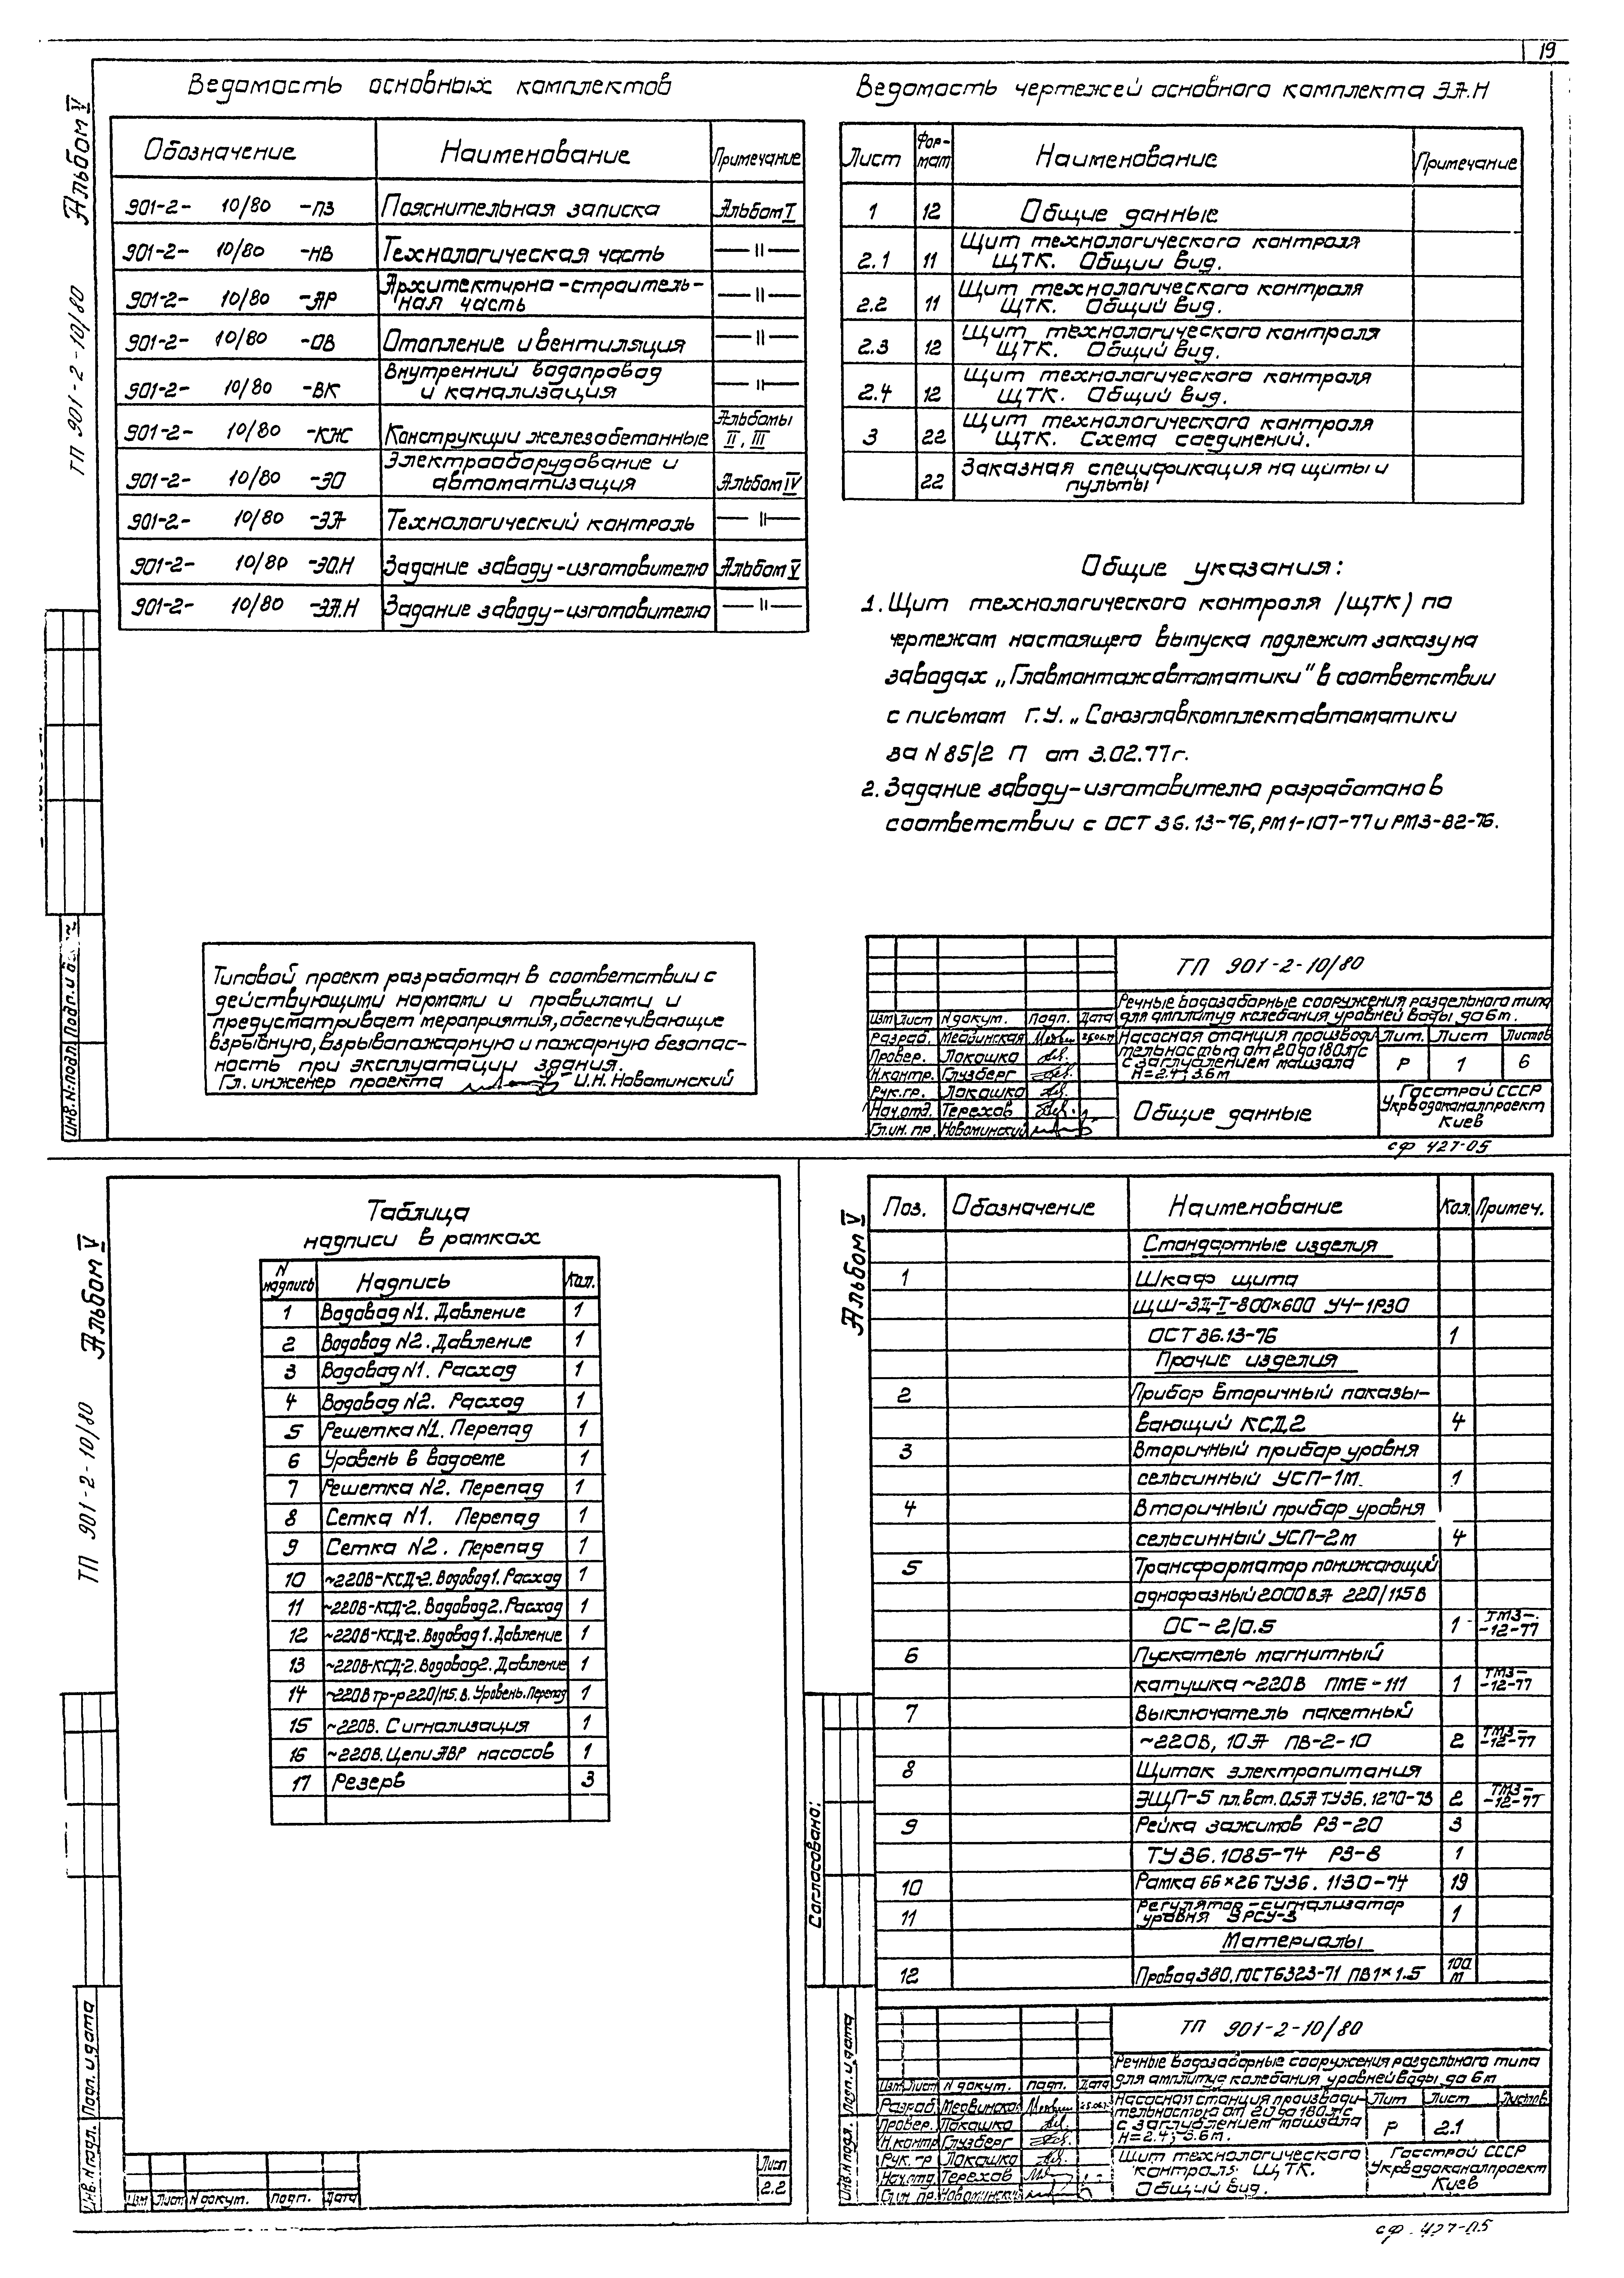 19
Альбом V
ТП 901-2-10/80
Ведомость основных комплектов
Обозначение Наименование Примечание
901-2- 10/80 -ПЗ Пояснительная записка Альбом I
901-2- 10/80 -НВ Технологическая часть —॥—
901-2- 10/80 -АР Архитектурно-строитель-
ная часть —॥—
901-2- 10/80 -ОВ Отопление и вентиляция —॥—
901-2- 10/80 -ВК Внутренний водопровод
и канализация —॥—
901-2- 10/80 -КЖ Конструкции железобетонные Альбомы
II, III
901-2- 10/80 -ЭО Электрооборудование и
автоматизация Альбом IV
901-2- 10/80 -ЭА Технологический контроль —॥—
901-2- 10/80 -ЭО.Н Задание заводу-изготовителю Альбом V
901-2- 10/80 -ЭА.Н Задание заводу-изготовителю —॥—
Ведомость чертежей основного комплекта ЭА.Н
Лист Фор-
мат Наименование Примечание
1 12 Общие данные
2.1 11 Щит технологического контроля
ЩТК. Общий вид.
2.2 11 Щит технологического контроля
ЩТК. Общий вид.
2.3 12 Щит технологического контроля
ЩТК. Общий вид.
2.4 12 Щит технологического контроля
ЩТК. Общий вид.
3 22 Щит технологического контроля
ЩТК. Схема соединений.
22 Заказная спецификация на щиты и
пульты
Общие указания:
1. Щит технологического контроля /ЩТК) по
чертежам настоящего выпуска подлежит заказу на
заводах „Главмонтажавтоматики" в соответствии
с письмом Г.У. „Союзглавкомплектавтоматики
за N 85/2 П от 3.02.77г.
2. Задание заводу-изготовителю разработано в
соответствии с ОСТ 36.13-76, РМ1-107-77 и РМ3-82-76.
Типовой проект разработан в соответствии с
действующими нормами и правилами и
предусматривает мероприятия, обеспечивающие
взрывную, взрывопожарную и пожарную безопас-
ность при эксплуатации здания.
Гл. инженер проекта И.Н. Новоминский
Инв.N:подл. Подп. и
ТП 901-2-10/80
Речные водозаборные сооружения раздельного типа
для амплитуд колебания уровней воды до 6м.
Изм Лист N докум. Подп. Дата
Разраб. Медвинская
Провер. Локошко
Н.контр. Глузберг
Рук.гр. Локошко
Нач.отд. Терехов
Гл.ин. пр. Новоминский
Насосная станция производи-
тельностью от 20 до 180л/с
с заглублением машзала
Н=2.4; 3.6м
Лит. Лист Листов
Р 1 6
Общие данные
Госстрой СССР
Укрводоканалпроект
Киев
сф 427-05
Альбом V
ТП 901-2-10/80
Таблица
надписи в рамках
N
надпись Надпись Кол.
1 Водовод N1. Давление 1
2 Водовод N2. Давление 1
3 Водовод N1. Расход 1
4 Водовод N2. Расход 1
5 Решетка N1. Перепад 1
6 Уровень в водоеме 1
7 Решетка N2. Перепад 1
8 Сетка N1. Перепад 1
9 Сетка N2. Перепад 1
10 ~220В-КСД-2. Водовод 1. Расход 1
11 ~220В-КСД-2. Водовод 2. Расход 1
12 ~220В-КСД-2. Водовод 1. Давление 1
13 ~220В-КСД-2. Водовод 2. Давление 1
14 ~220В тр-р 220/115.В. Уровень. Перепад 1
15 ~220В. Сигнализация 1
16 ~220В. Цепи АВР насосов 1
17 Резерв 3
Инв.N подл. Подп. и дата
Изм Лист N докум. Подп. Дата
Лист
2.2
Альбом V
Поз. Обозначение Наименование Кол. Примеч.
Стандартные изделия
1 Шкаф щита
ЩШ-ЗД-I-800×600 УЧ-1Р30
ОСТ 36.13-76 1
Прочие изделия
2 Прибор вторичный показы-
вающий КСД2 4
3 Вторичный прибор уровня
сельсинный УСП-1м. 1
4 Вторичный прибор уровня
сельсинный УСП-2м 4
5 Трансформатор понижающий
однофазный 2000ВА 220/115В
ОС-2/0.5 1 ТМ3-
-12-77
6 Пускатель магнитный
катушка ~220В ПМЕ-111 1 ТМ3-
-12-77
7 Выключатель пакетный
~220В, 10А ПВ-2-10 2 ТМ3-
-12-77
8 Щиток электропитания
ЭЩП-5 пл.вст. 0,5А ТУ36.1270-73 2 ТМ3-
-12-77
9 Рейка зажимов РЗ-20 3
ТУ36.1085-74 РЗ-8 1
10 Рамка 66×26 ТУ36.1130-74 19
11 Регулятор-сигнализатор
уровня ЭРСУ-3 1
Материалы
12 Провод 380. ГОСТ 6323-71 ПВ 1×1.5 100
м
Согласовано:
Инв.N подл. Подп. и дата
ТП 901-2-10/80
Речные водозаборные сооружения раздельного типа
для амплитуд колебания уровней воды до 6м
Изм Лист N докум. Подп. Дата
Разраб. Медвинская
Провер. Локошко
Н.контр Глузберг
Рук. гр Локошко
Нач.отд. Терехов
Гл.ин. пр. Новоминский
Насосная станция производи-
тельностью от 20 до 180л/с
с заглублением машзала
Н=2.4; 3.6м.
Лит Лист Листов
Р 2.1
Щит технологического
контроля ЩТК.
Общий вид.
Госстрой СССР
Укрводоканалпроект
Киев
сф. 427-05